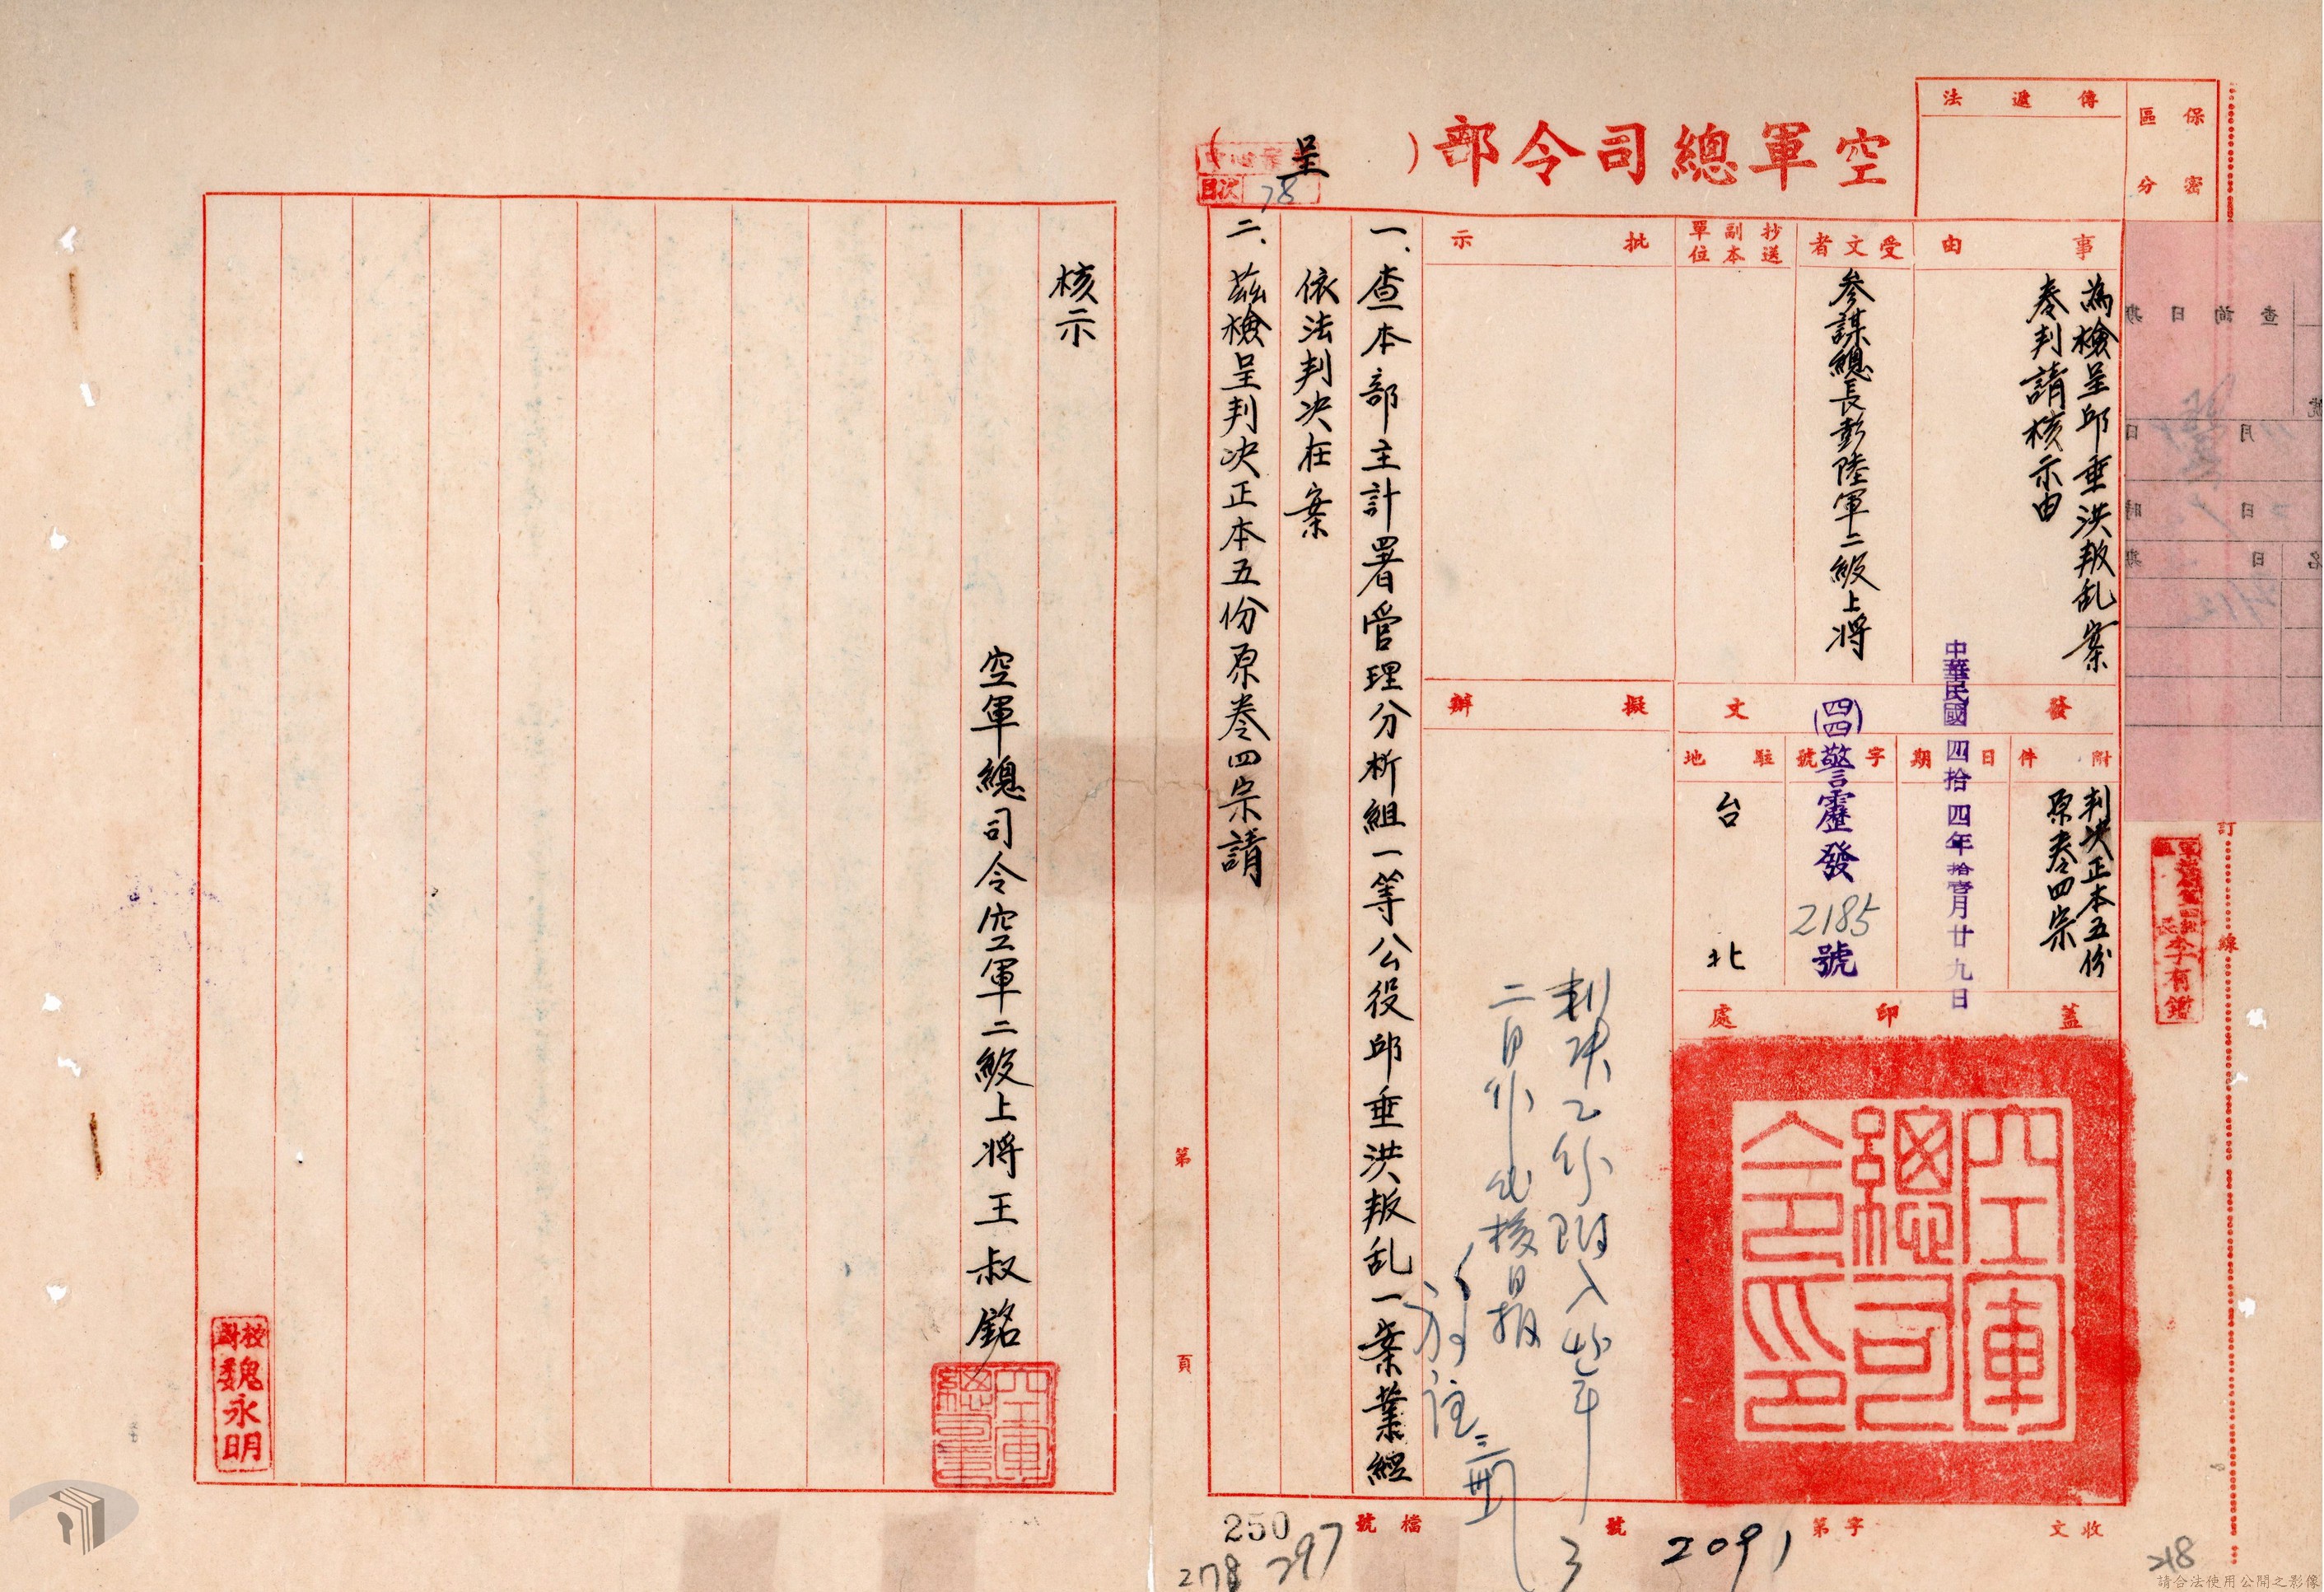 保密區分
傳遞法
空軍總司令部（呈）
目次
78
事由
為檢呈邱垂洪叛乱案
卷判請核示由
受文者
參謀總長彭陸軍二級上將
抄送副本單位
批示
擬辦
發文
附件
判決正本五份
原卷四宗
日期
中華民國四拾四年拾壹月廿九日
字號
(四四)警靂發2185號
駐地
台北
蓋印處
空軍
總司
令印
一、查本部主計署管理分析組一等公役邱垂洪叛乱一案業經
依法判决在案
二、茲檢呈判决正本五份原卷四宗請
核示
空軍總司令空軍二級上將王叔銘
校對
魏永明
李有鑑
訂線
第頁
收文
字第
2091
號
檔號
250
297
278
218
請合法使用公開之影像